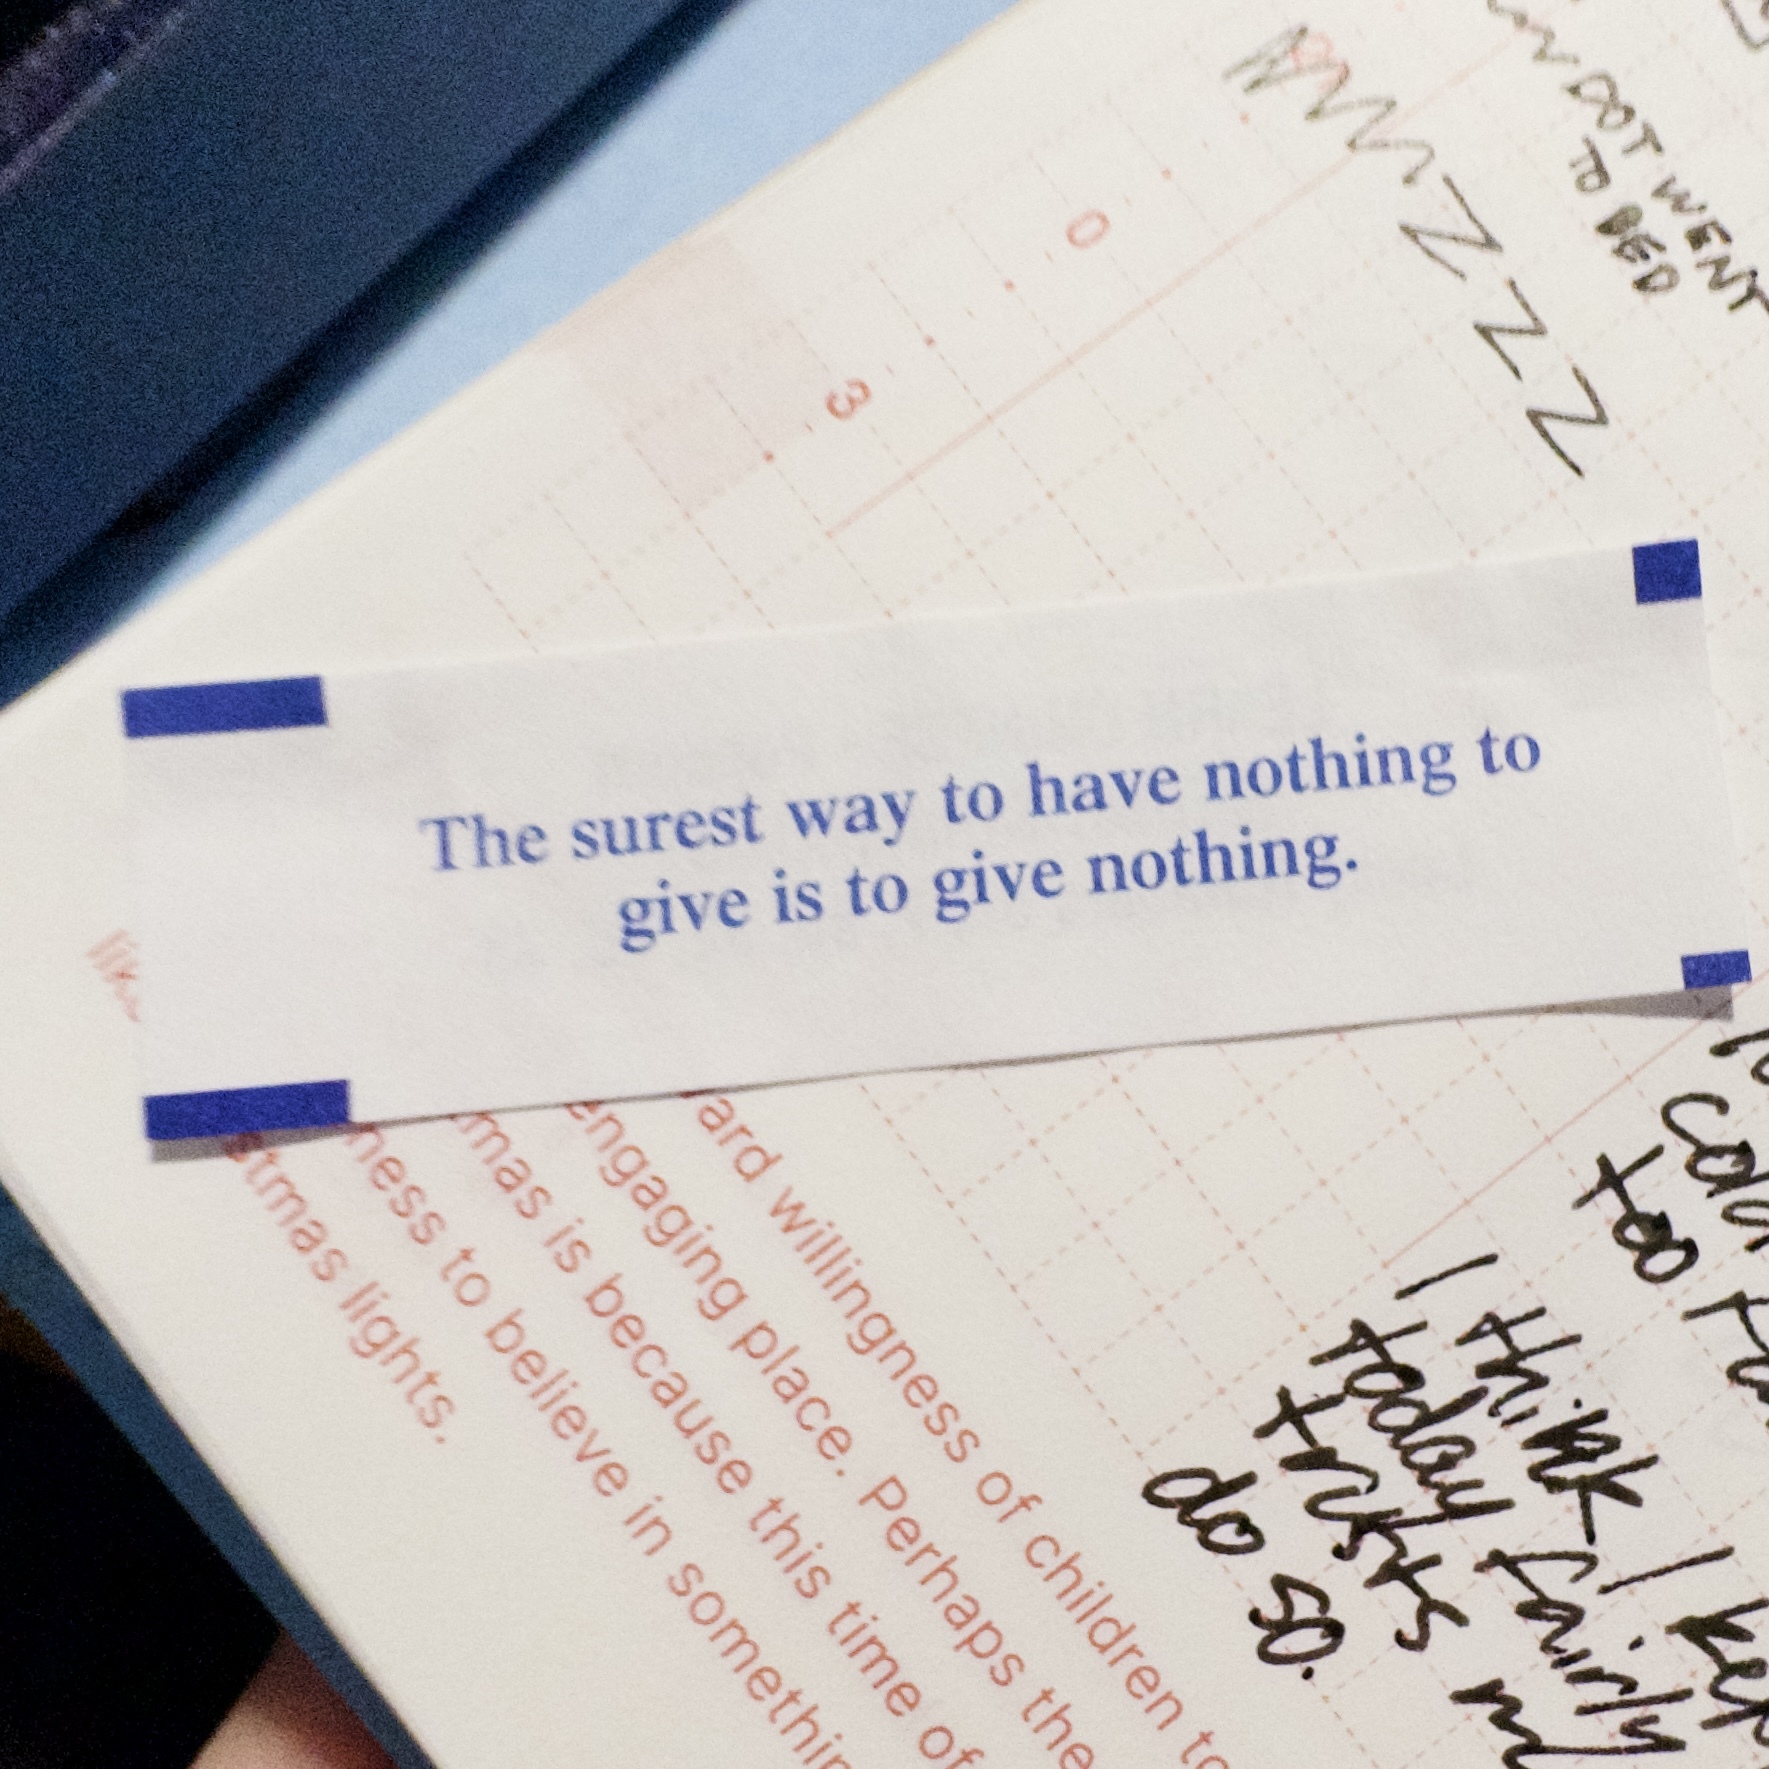 DOT WENT
TO BED
Z Z Z
0
3
The surest way to have nothing to
give is to give nothing.
ard willingness of children to
engaging place. Perhaps the
mas is because this time of
ness to believe in somethin
stmas lights.
too
I think I kep
today fairly
do so.